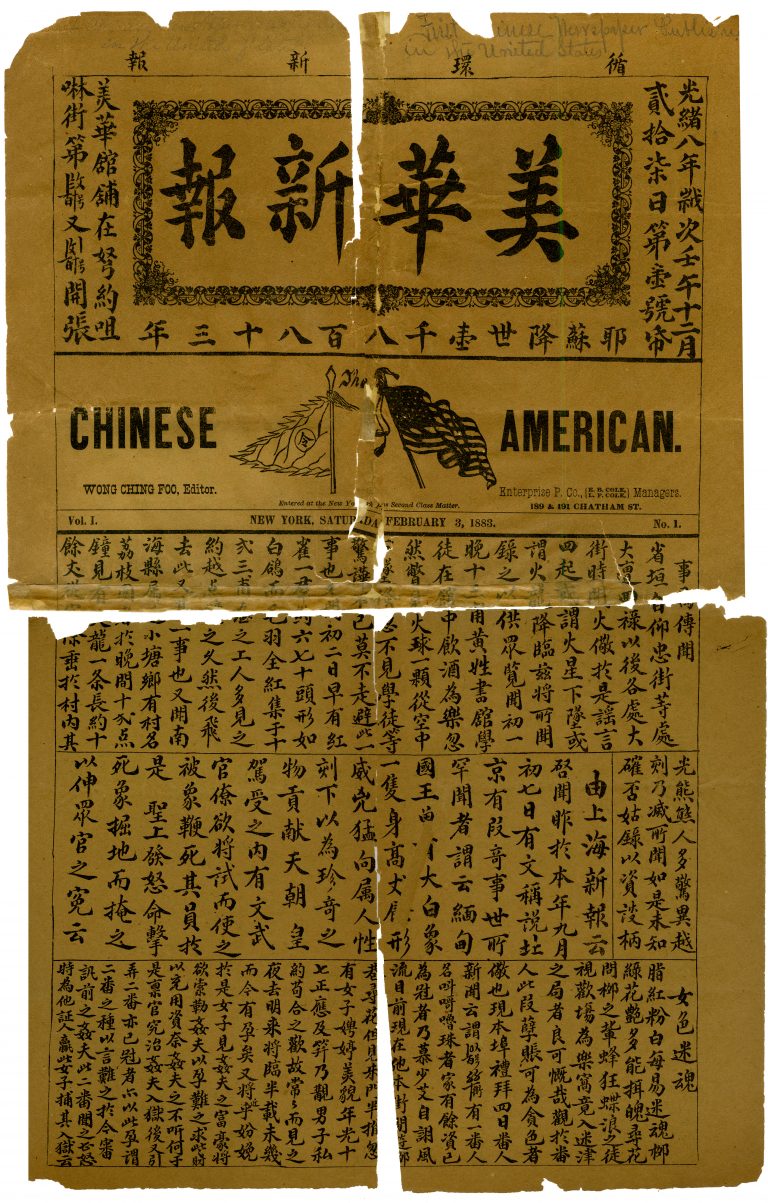 First inese Newspaper Publishe
in the United States
循環新報
光緒八年歲次壬午十二月
貳拾柒日第壹號帋
美華新報
美華舘舖在弩約咀
啉街第又開張
耶蘇降世壹千八百八十三年
The
CHINESE AMERICAN.
WONG CHING FOO, Editor.
Enterprise P. Co., (E. B. COLE, L. F. COLE,) Managers.
Entered at the New York as Second Class Matter.
189 & 191 CHATHAM ST.
Vol. I. NEW YORK, SATURDA FEBRUARY 3, 1883. No. 1.
事傳聞
省垣自仰忠街等處
大祿以後各處大
街時聞火儆於是謠言
四起謂火星下墜或
謂火降臨茲將所聞
錄之以供眾覽聞初一
晚十用黃姓書舘學
徒在舘中飲酒為樂忽
然瞥火球一顆從空中
忽不見學徒等
驚諤不已莫不走避此一
事也初二日早有紅
雀一六七十頭形如
白鴿而毛羽全紅集于十
弍三甫之工人多見之
約越点之久然後飛
去此又一事也又聞南
海縣屬小塘鄉有村名
荔枝於晚間十弍点
鐘見有龍一条長約十
餘丈垂於村內其
光熊熊人多驚異越
刻乃滅所聞如是未知
確否姑錄以資談柄
由上海新報云
啓聞昨於本年九月
初七日有文稱說北
京有段奇事世所
罕聞者謂云緬甸
國王大白象
一隻身高丈形
威兇猛向属人性
刻下以為珍奇之
物貢献天朝皇
駕受之內有文武
官僚欲將試而使之
被象鞭死其員於
是 聖上發怒命擊
死象掘地而掩之
以伸眾官之寃云
女色迷魂
脂紅粉白每易迷魂柳
綠花艷多能揖魄尋花
問柳之輩蜂狂蝶浪之徒
視歡場為樂窩竟入迷津
之局者良可慨哉觀於番
人此段孽賬可為貪色者
儆也現本埠禮拜四日番人
新聞云謂有一番人
名呌嚕珠者家有餘資已
為冠者乃慕少艾自謝風
流日前現在他本村閒遊鄰
巷尋花但見朱門半掩忽
有女子娉婷美貌年光十
七正應及笄乃觀男子私
約苟合之歡故常々而見之
夜去明来將臨半載未幾
而今有孕矣又將至分娩
於是女子見姦夫之富豪將
欲索勒姦夫以孕難之求些財
以免用資奈姦夫之不听何于
是稟官究治姦夫入獄後又引
弄二番亦已冠者亦以此孕謂
二番之種以言難之於今審
訊前之姦夫此二番聞之甚怒
時為他証人贏此女子捕其入獄云